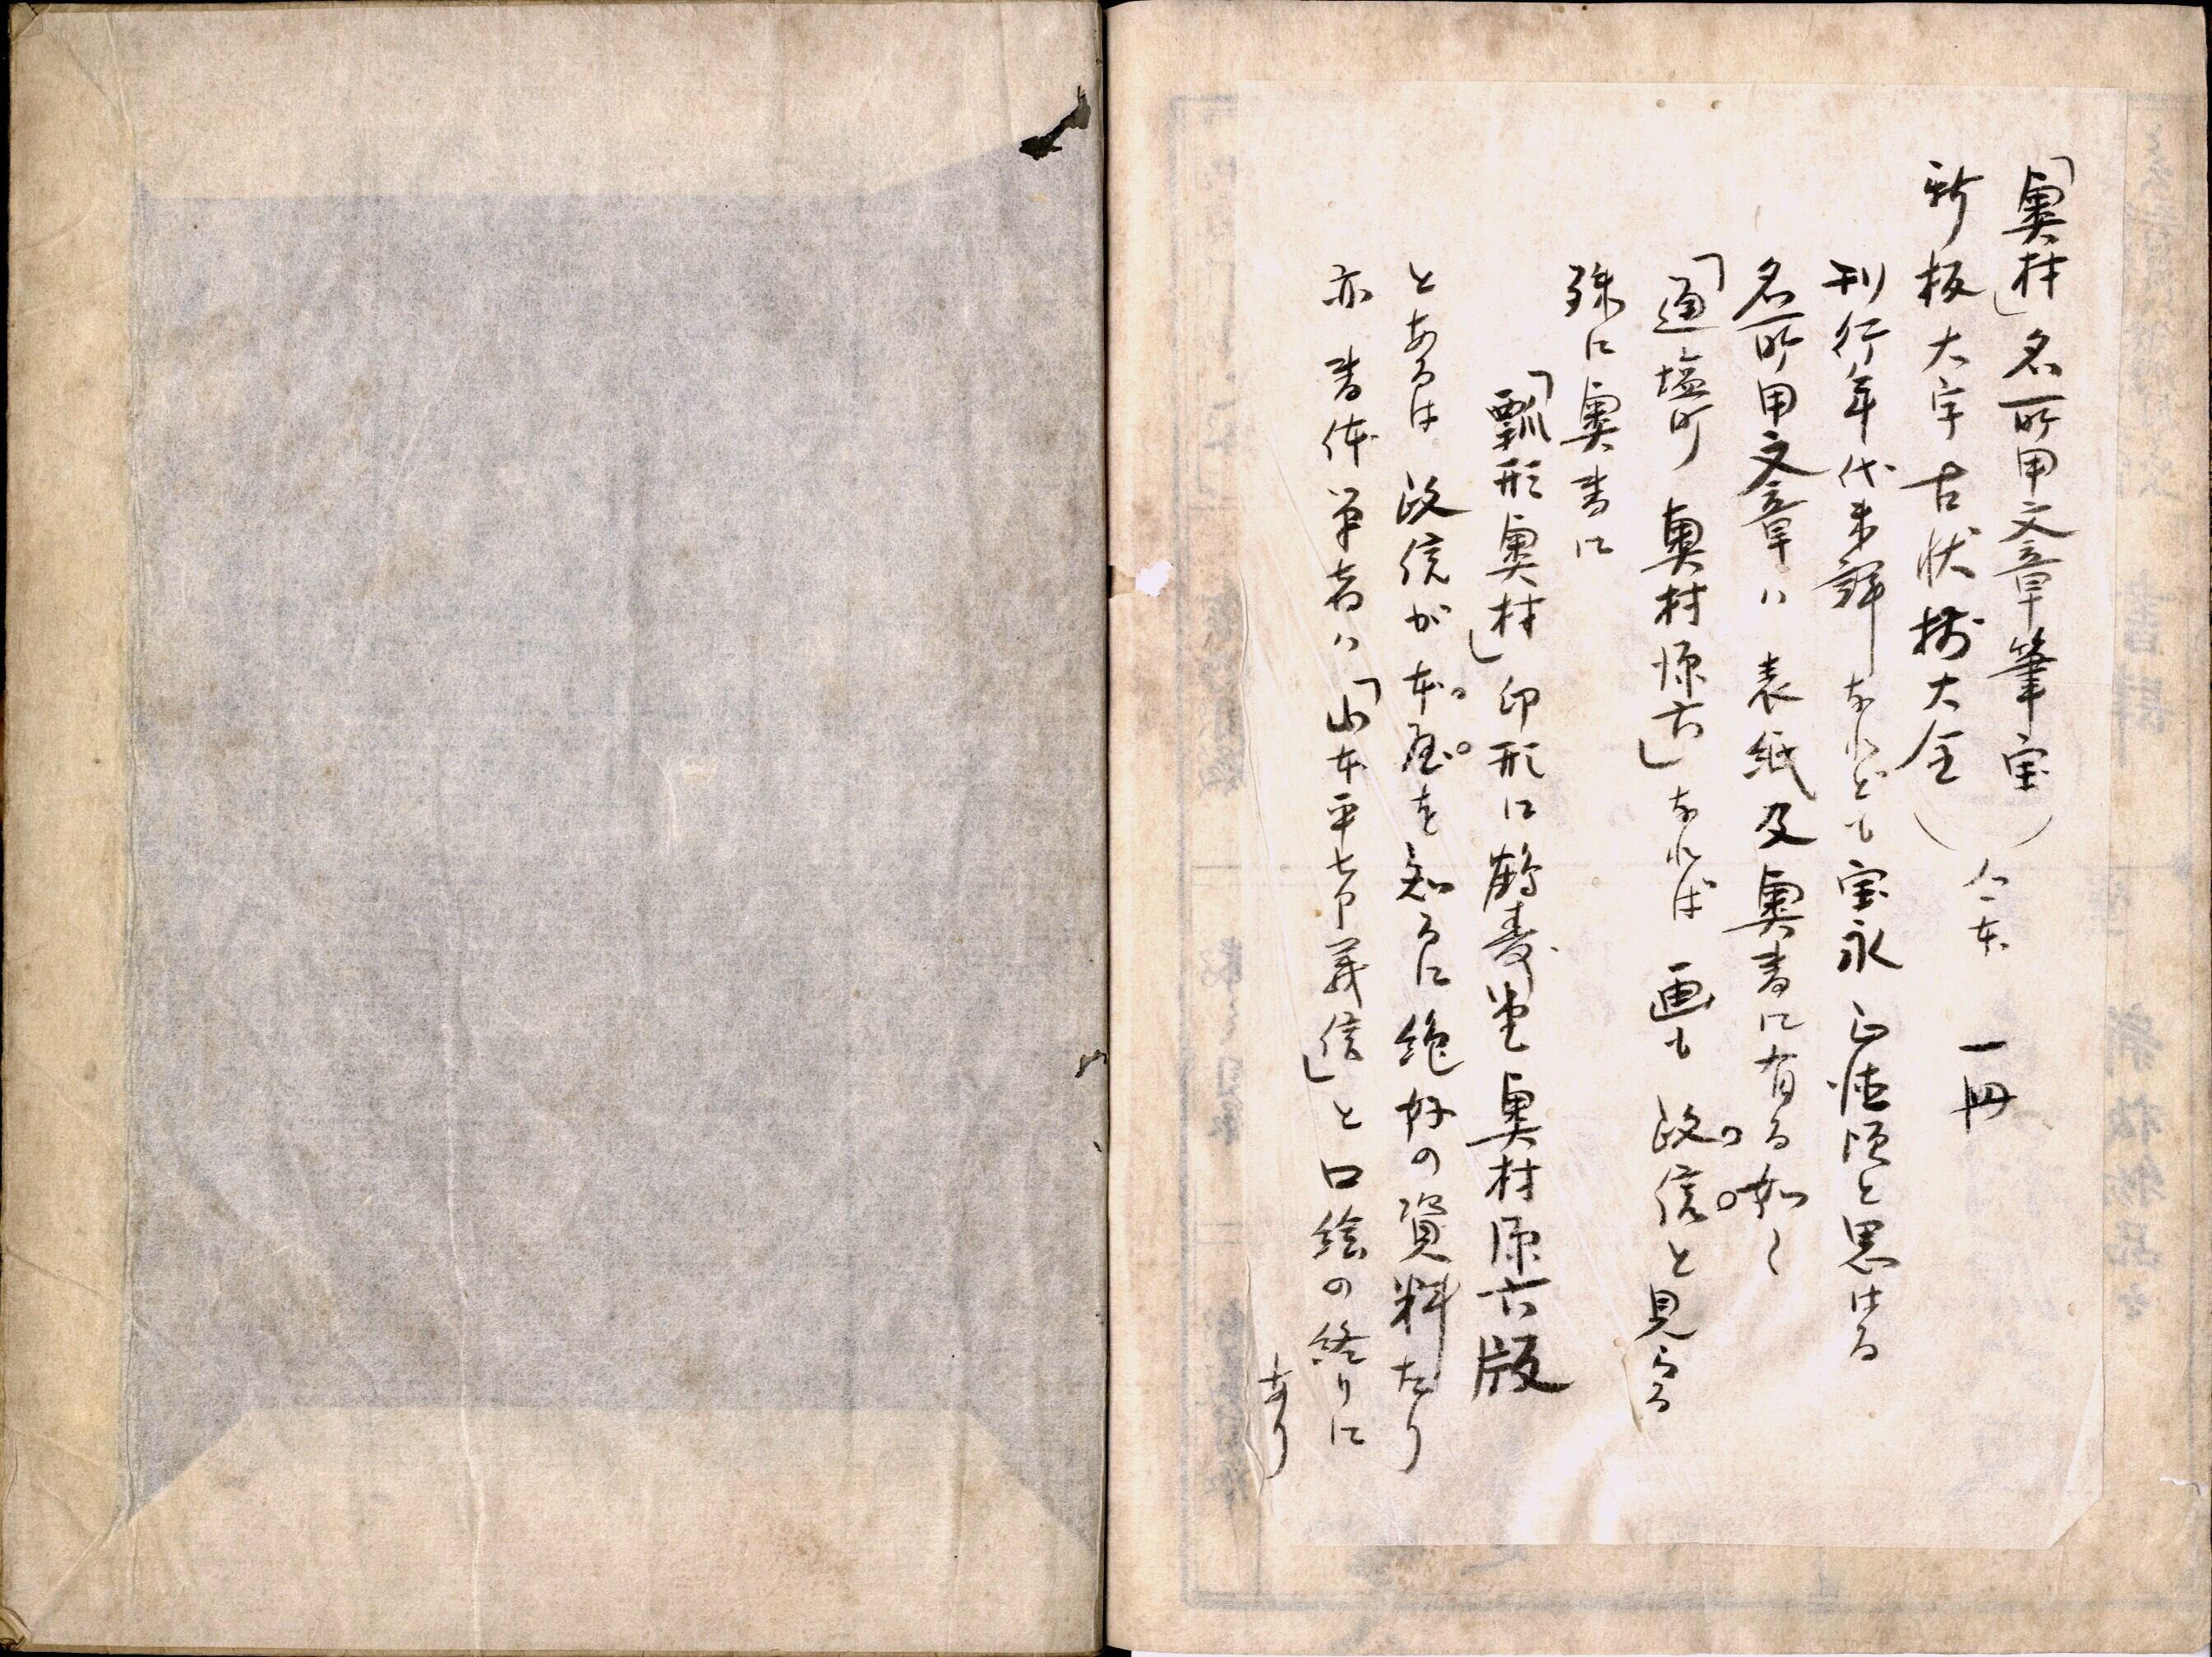 「奥村」名所用文章筆宝
新板大字古状揃大全
合本 一冊
刊行年代未詳なれども宝永正徳頃と思はる
名所用文章ハ表紙及奥書に有る如く
「通塩町 奥村源六」なれば画も政信と見らる
殊に奥書に
「瓢形奥村」印形に鶴寿堂奥村源六版
とあるは政信が本屋を知るに絶好の資料たり
亦書体筆者ハ「山本平七郎義信」と口絵の終りに
あり